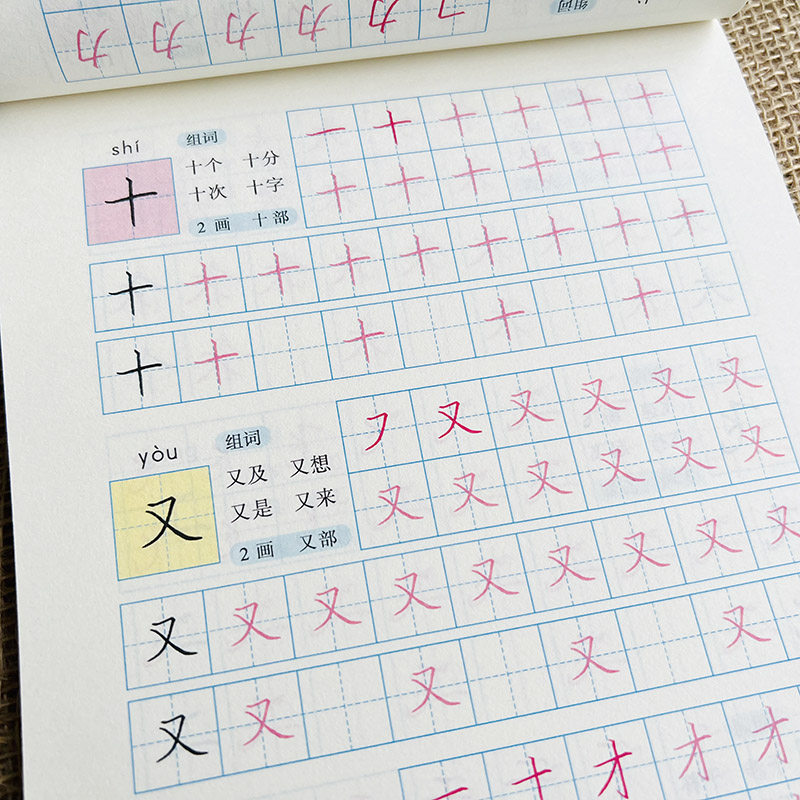 力 力 力 力 力 ㇆
组词
shí
组词
十个 十分
十次 十字
2画 十部
十
一 十 十 十 十 十
十 十 十 十 十 十
十 十 十 十 十 十 十 十 十
十 十 十 十 十
yòu
组词
又及 又想
又是 又来
2画 又部
又
㇇ 又 又 又 又 又
又 又 又 又 又 又
又 又 又 又 又 又 又 又
又 又 又 又 又
一 十 才 才 才